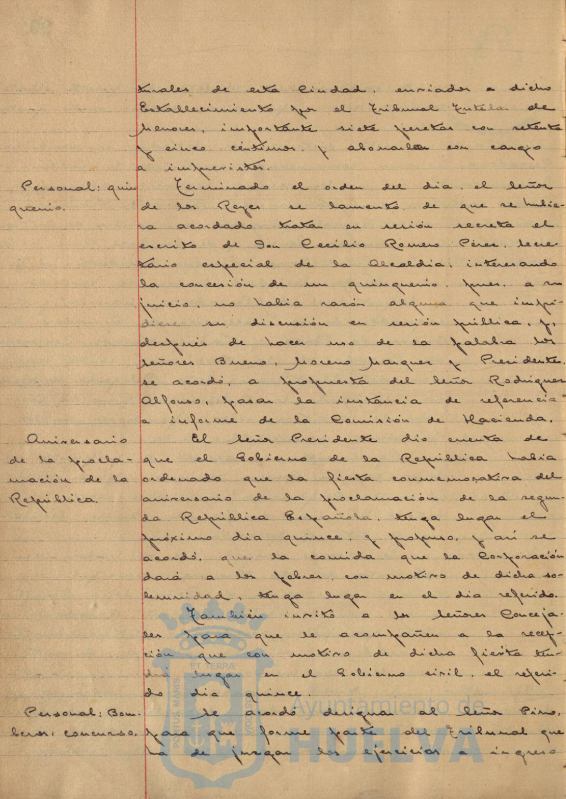 turales de esta Ciudad, enviados a dicho
Establecimiento por el Tribunal Tutelar de
Menores, importante siete pesetas con setenta
y cinco céntimos, y abonarlas con cargo
a imprevistos.
Personal: quin
quenio.
Terminado el orden del dia, el Señor
de los Reyes se lamentó de que se hubie-
ra acordado tratar en sesión secreta el
escrito de Don Cecilio Romero Pérez, Secre-
tario especial de la Alcaldia, interesando
la concesión de un quinquenio, pues, a su
juicio, no habia razón alguna que impi-
diese su discusión en sesión pública, y,
después de hacer uso de la palabra los
Señores Bueno, Moreno Marquez y Presidente,
se acordó, a propuesta del Señor Rodriguez
Alfonso, pasar la instancia de referencia
a informe de la Comisión de Hacienda.
Aniversario
de la procla-
mación de la
República.
El Señor Presidente dio cuenta de
que el Gobierno de la República habia
ordenado que la fiesta conmemorativa del
aniversario de la proclamación de la segun-
da República Española, tenga lugar el
próximo dia quince, y propuso, y asi se
acordó, que la comida que la Corporación
dará a los pobres, con motivo de dicha so-
lemnidad, tenga lugar en el dia referido.
Tambien invitó a los Señores Conceja-
les para que le acompañen a la recep-
ción que con motivo de dicha fiesta ten-
drá lugar en el Gobierno civil, el referi-
do dia quince.
Personal: Bom-
beros: concurso.
Se acordó designar al Señor Pino,
para que forme parte del Tribunal que
ha de juzgar los ejercicios ingreso
PORTUS MARIS ET TERRAE
Ayuntamiento de
HUELVA